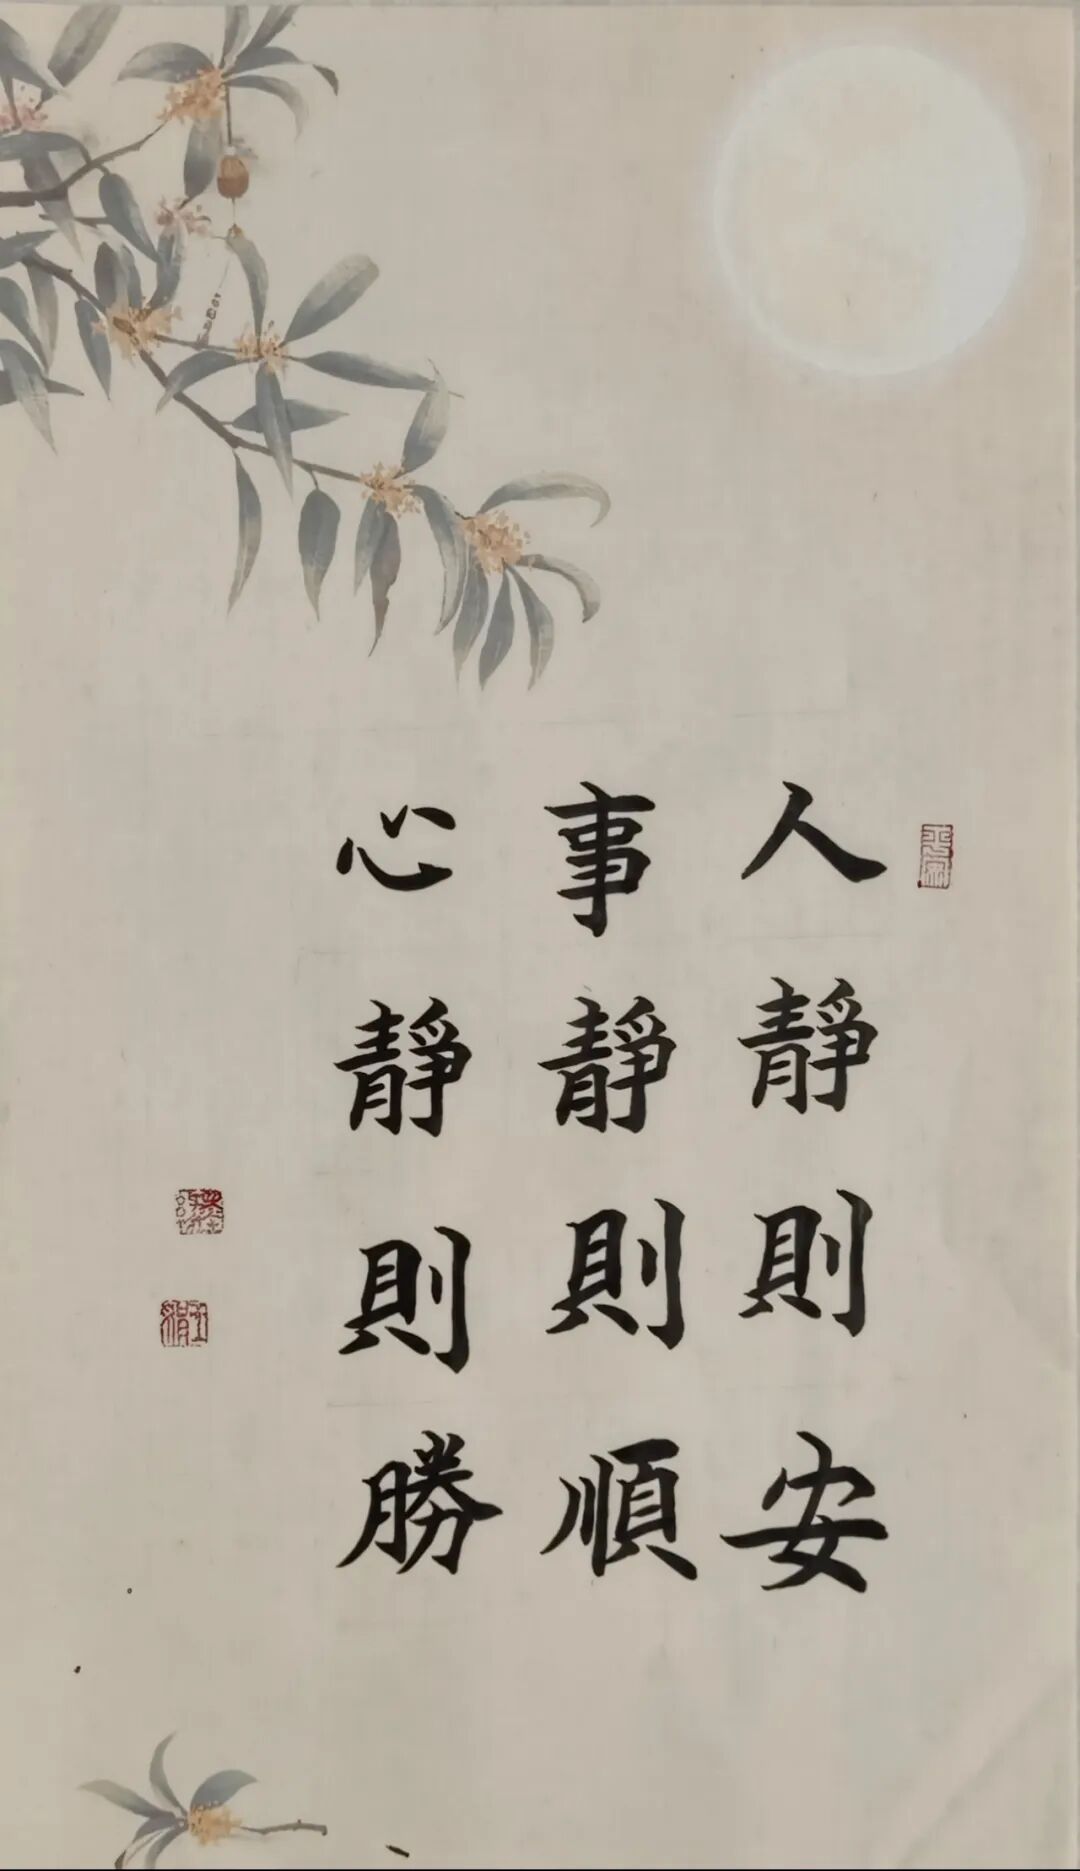 人靜則安
事靜則順
心靜則勝